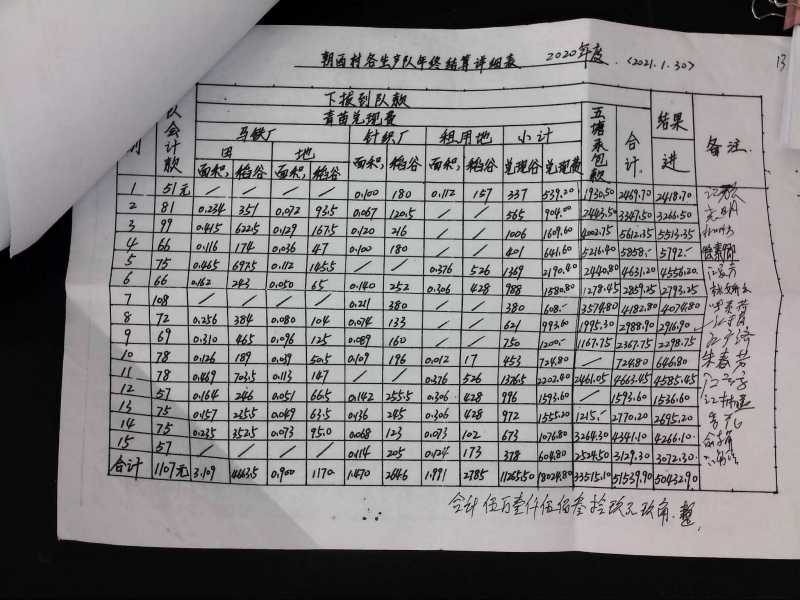 朝西村各生产队年终结算详细表 2020年度 (2021.1.30) 13
下拨到队款
青苗兑现费
马铁厂 针织厂 租用地 小计
别 队会计款 田 地 五塘承包款 合计 结果 进 备注
面积 稻谷 面积 稻谷 面积 稻谷 面积 稻谷 兑现谷 兑现费
1 51元 / / / / 0.100 180 0.112 157 337 539.20 1930.50 2469.70 2418.70
2 81 0.234 351 0.072 93.5 0.067 120.5 / / 565 904.00 2443.50 3347.50 3266.50
3 99 0.415 622.5 0.129 167.5 0.120 216 / / 1006 1609.60 4002.75 5612.35 5513.35
4 66 0.116 174 0.036 47 0.100 180 / / 401 641.60 5216.40 5858.- 5792.-
5 75 0.465 697.5 0.112 145.5 / / 0.376 526 1369 2190.40 2440.80 4631.20 4556.20
6 66 0.162 243 0.050 65 0.140 252 0.306 428 988 1580.80 1278.45 2859.25 2793.25
7 108 / / / / 0.211 380 / / 380 608.- 3574.80 4182.80 4074.80
8 72 0.256 384 0.080 104 0.074 133 / / 621 993.60 1995.30 2988.90 2916.90
9 69 0.310 465 0.096 125 0.089 160 / / 750 1200.- 1167.75 2367.75 2298.75
10 78 0.126 189 0.039 50.5 0.109 196 0.012 17 453 724.80 / 724.80 646.80 朱春芳
11 78 0.469 703.5 0.113 147 / / 0.376 526 1376.5 2202.40 2461.05 4663.45 4585.45
12 57 0.164 246 0.051 66.5 0.142 255.5 0.306 428 996 1593.60 / 1593.60 1536.60
13 75 0.157 235.5 0.049 63.5 0.136 245 0.306 428 972 1555.20 1215.- 2770.20 2695.20
14 75 0.235 352.5 0.073 95.0 0.068 123 0.073 102 673 1076.80 3264.30 4341.10 4266.10
15 57 / / / / 0.114 205 0.124 173 378 604.80 2524.50 3129.30 3072.30
合计 1107元 3.109 4663.5 0.900 1170 1.470 2646 1.991 2785 11265.50 18024.80 33515.10 51539.90 50432.90
合计伍万壹仟伍佰叁拾玖元玖角.整.